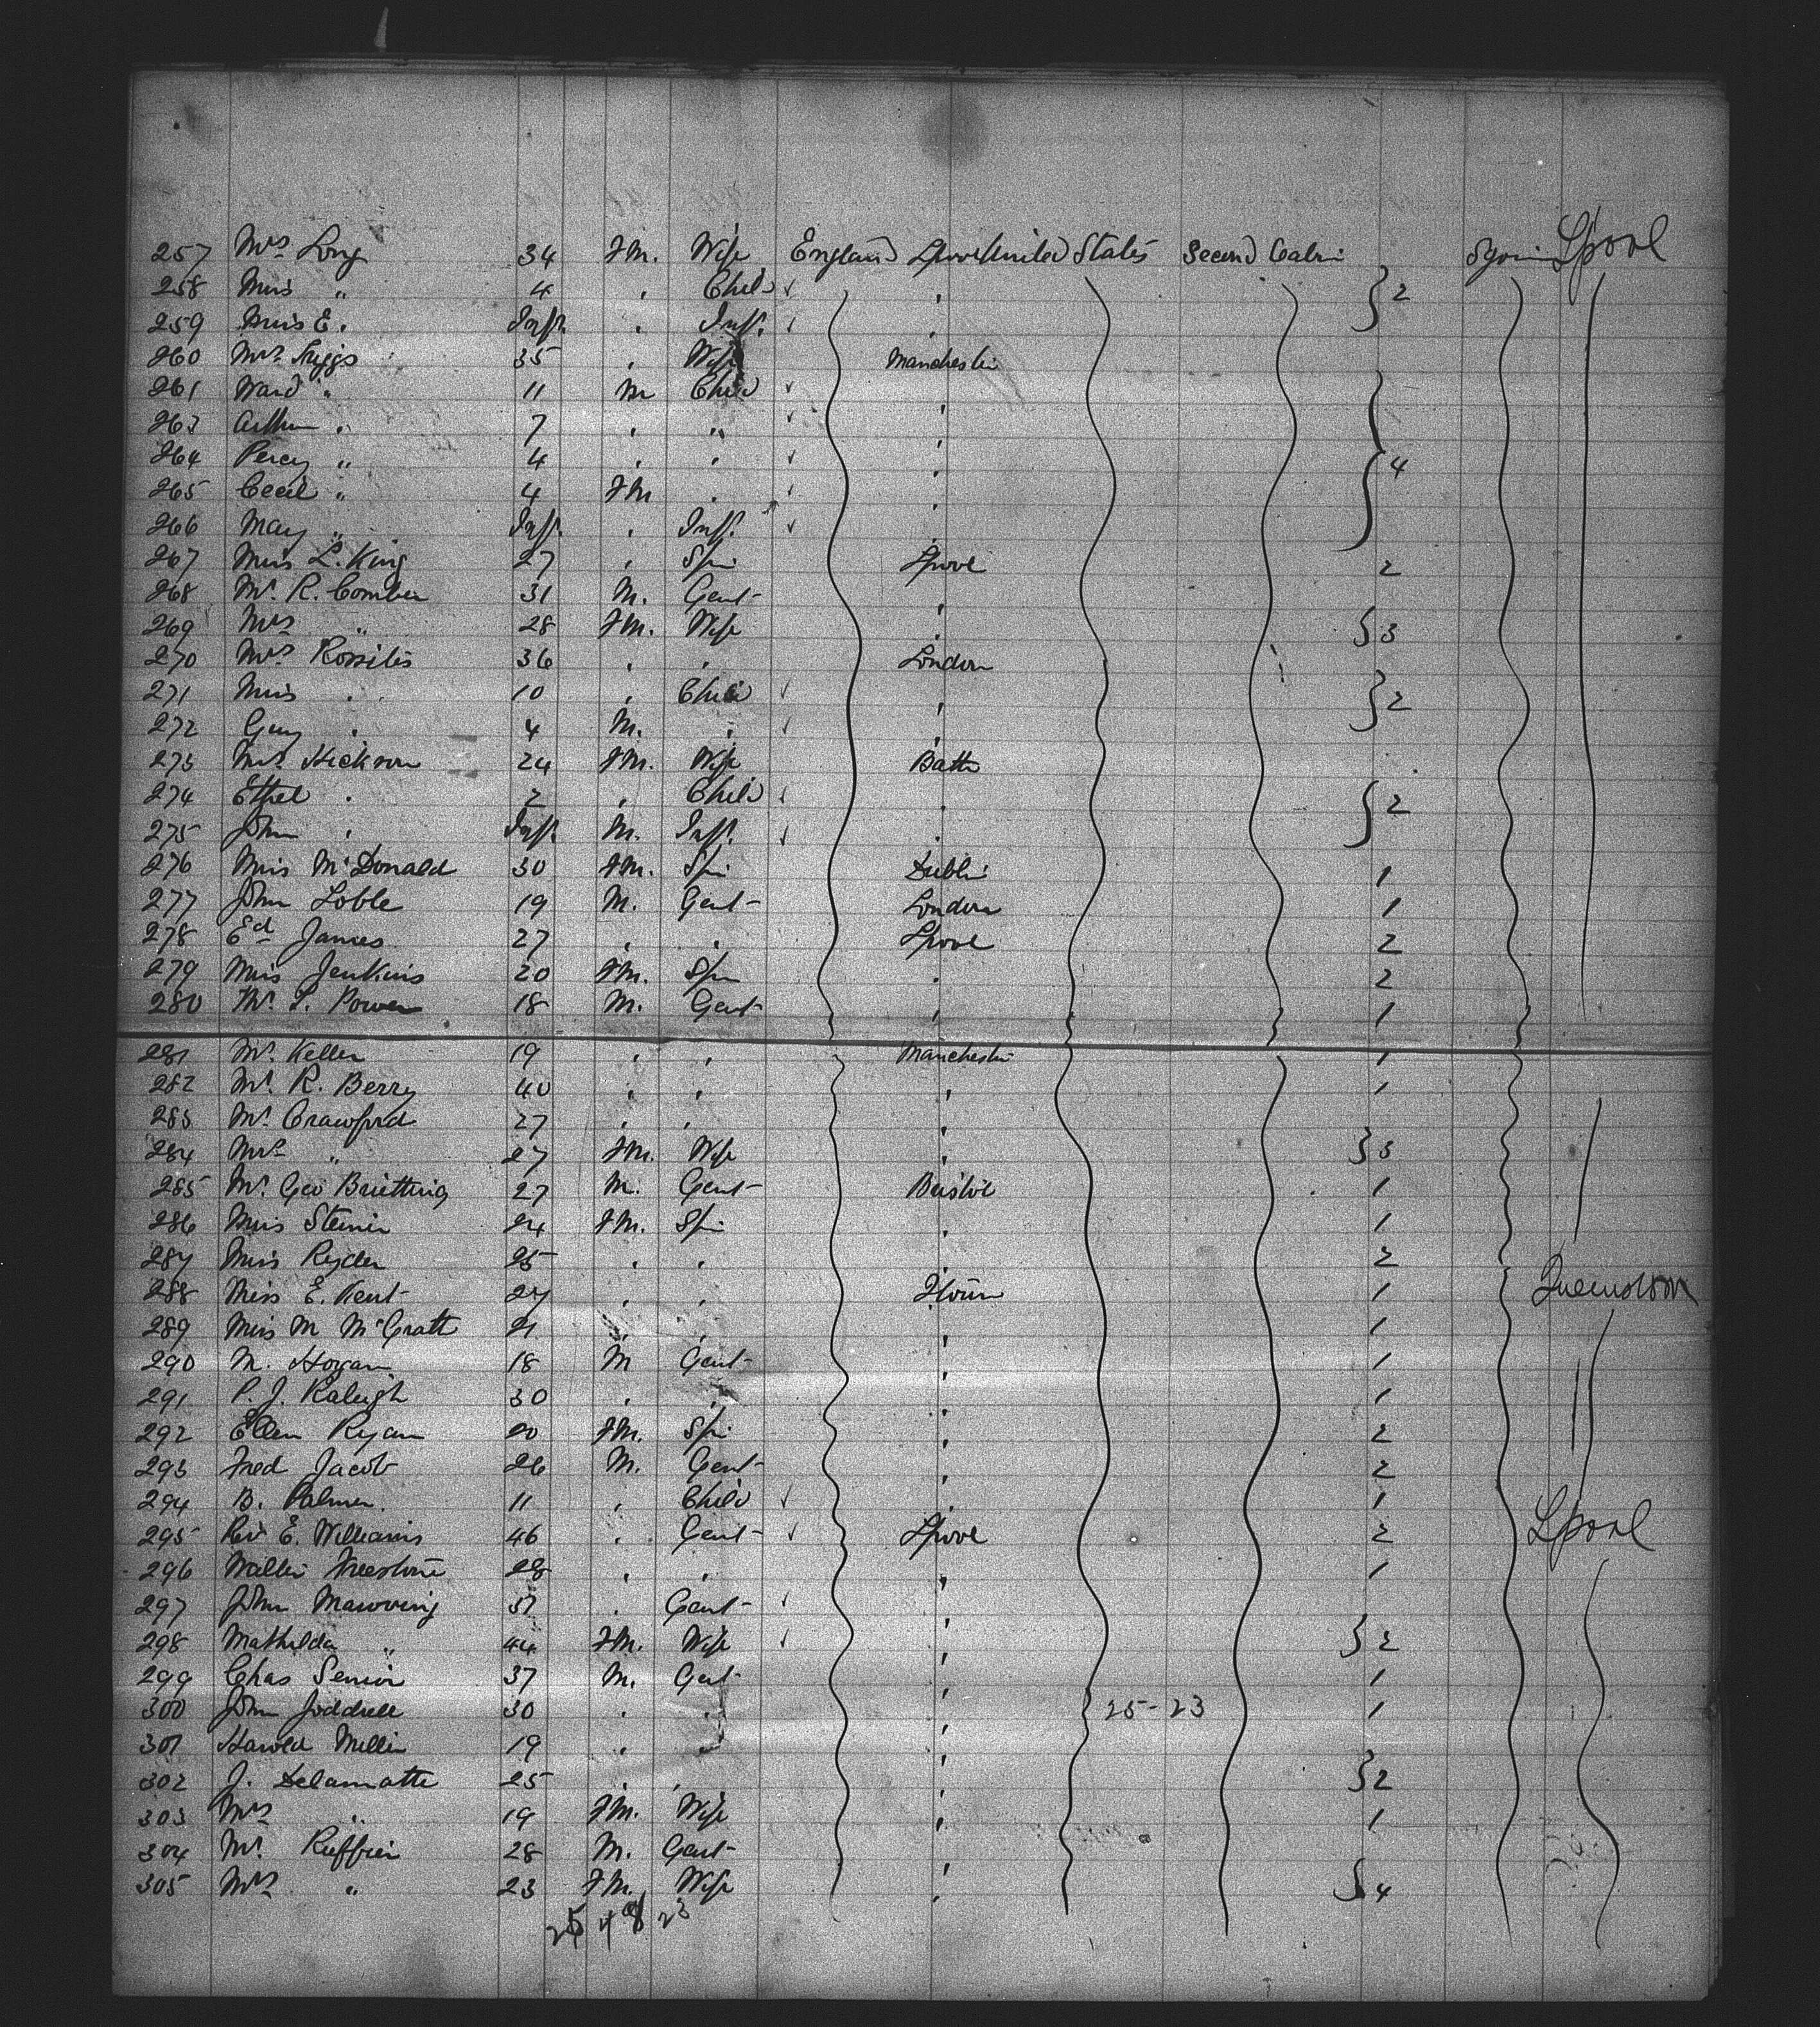 257 Mrs Long 34 Fm. Wife England Lpool United States Second Cabin 5 yrs in Lpool
258 Miss " 4 , Child ✓ , } 2
259 Miss E. Inft. , Inft. ✓ ,
260 Mrs 35 , Wife Manchester
261 Ward " 11 m Child ✓ ,
263 Arthur " 7 , " ✓ ,
264 Percy " 4 , , ✓ , } 4
265 Cecil " 4 Fm , ✓ ,
266 May " Inft. , Inft. ✓
267 Miss L. King 27 , Spin Lpool 2
268 Mr. R. Comber 31 M. Gent ,
269 Mrs " 28 Fm. Wife , } 3
270 Mrs 36 , , London
271 Miss " 10 , Child ✓ , } 2
272 Guy " 4 M. , ✓ ,
273 Mrs Hickson 24 Fm. Wife Bath
274 Ethel " 2 , Child ✓ , } 2
275 John " Inft. M. Inft. ✓ ,
276 Miss McDonald 30 Fm. Spin Dublin 1
277 John Loble 19 M. Gent London 1
278 Ed James 27 , , Lpool 2
279 Miss Jenkins 20 Fm. Spin , 2
280 Mr. Power 18 M. Gent , 1
281 Mr. Keller 19 , , Manchester 1
282 Mr. R. Berry 40 , , , 1
283 Mr. Crawford 27 , , ,
284 Mrs " 27 Fm. Wife , } 3
285 Mr. Geo 27 M. Gent Bristol 1
286 Miss 24 Fm. Spin , 1
287 Miss Ryder 25 , , , 2
288 Miss E. Kent 27 , , 1 Queenstown
289 Miss M McGrath 21 , , , 1
290 M. Hogan 18 M Gent , 1
291 P. J. Raleigh 30 , , , 1
292 Ellen Ryan 20 Fm. Spin , 2
293 Fred Jacob 26 M. Gent , 2
294 B. Palmer 11 , Child ✓ , 1
295 Rev E. Williams 46 , Gent ✓ Lpool 2 Lpool
296 Walter Freestone 28 , , , 1
297 John 37 , Gent ✓ ,
298 Mathilda " 44 Fm. Wife ✓ , } 2
299 Chas Senior 37 M. Gent , 1
300 John Joddrell 30 , , , 25-23 1
301 Harold 19 , , ,
302 J. Delamatte 25 , , , } 2
303 Mrs " 19 Fm. Wife , 1
304 Mr. 28 M. Gent
305 Mrs " 23 Fm. Wife , } 4
25 48 23